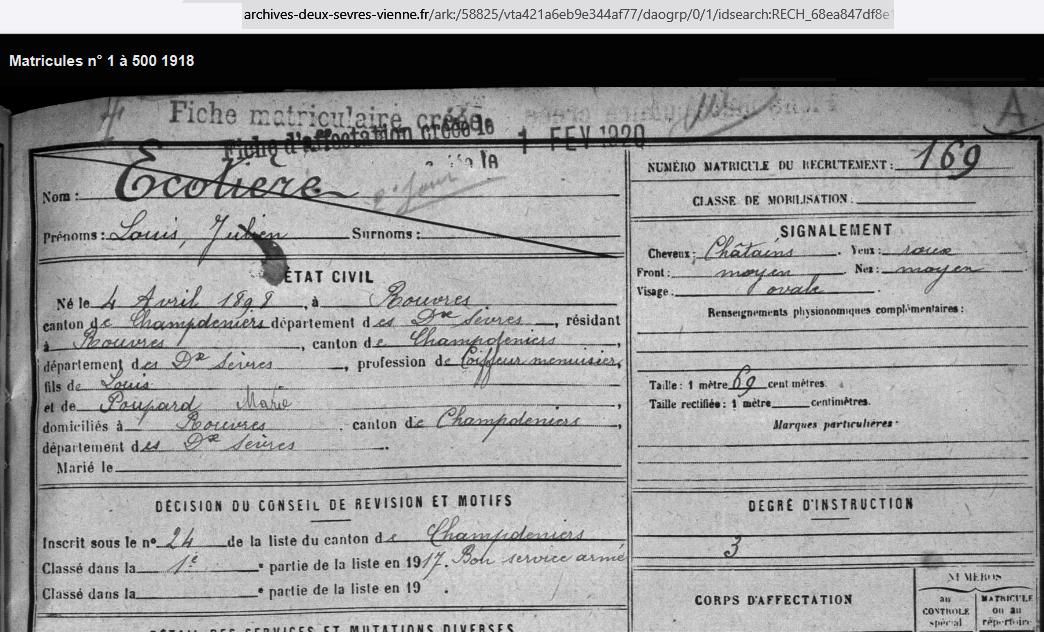 archives-deux-sevres-vienne.fr/ark:/58825/vta421a6eb9e344af77/daogrp/0/1/idsearch:RECH_68ea847df8e
Matricules n° 1 à 500 1918
Fiche matriculaire créée
Fiche d'affectation créée le 1 FEV 1920
A
Nom : Ecotière
Prénoms : Louis, Julien Surnoms :
ÉTAT CIVIL
Né le 4 Avril 1898, à Rouvres
canton de Champdeniers département des Dx Sèvres, résidant
à Rouvres, canton de Champdeniers,
département des Dx Sèvres, profession de Coiffeur menuisier,
fils de Louis
et de Poupard Marie,
domiciliés à Rouvres canton de Champdeniers,
département des Dx Sèvres.
Marié le
DÉCISION DU CONSEIL DE REVISION ET MOTIFS
Inscrit sous le n° 24 de la liste du canton de Champdeniers
Classé dans la 1e partie de la liste en 1917. Bon service armé
Classé dans la partie de la liste en 19 .
DÉTAIL DES SERVICES ET MUTATIONS DIVERSES
NUMÉRO MATRICULE DU RECRUTEMENT : 169
CLASSE DE MOBILISATION :
SIGNALEMENT
Cheveux : Châtains. Yeux : roux
Front : moyen Nez : moyen
Visage : ovale
Renseignements physionomiques complémentaires :
Taille : 1 mètre 69 centimètres.
Taille rectifiée : 1 mètre centimètres.
Marques particulières :
DEGRÉ D'INSTRUCTION
3
CORPS D'AFFECTATION
NUMÉROS
au CONTROLE spécial
MATRICULE ou au répertoire